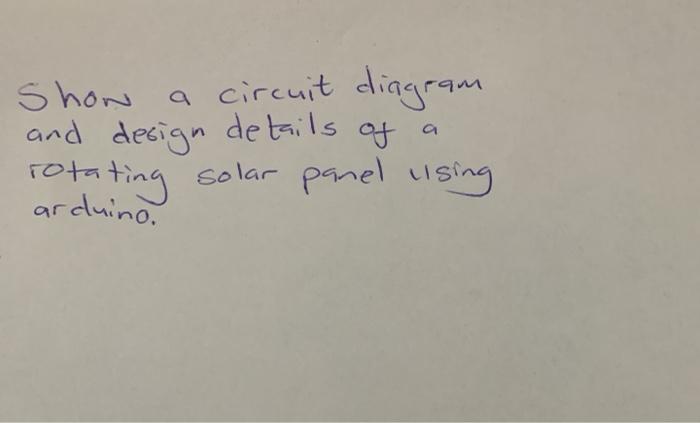 Show a circuit diagram
and design details of a
rotating solar panel using
arduino.